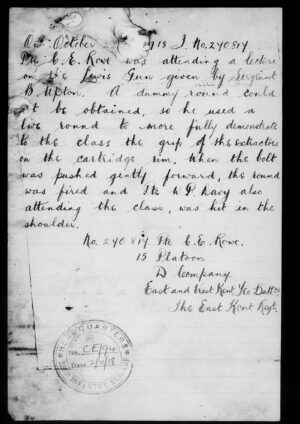 On October 29 1918 I, No. 270817
Pte. E. E. Rowe was attending a lecture
on the Lewis Gun given by Sergeant
B. Upton. A dummy round could
not be obtained, so he used a
live round to more fully demonstrate
to the class the grip of the extractors
on the cartridge rim. When the bolt
was pushed gently forward, the round
was fired and Pte W P Navy also
attending the class, was hit in the
shoulder.
No. 270817 Pte E. E. Rowe.
15 Platoon
D Company.
East and West Kent Yeo Battn
The East Kent Regt.
HEADQUARTERS
No. CE/94
Date 2/11/18
INFANTRY BRIGADE